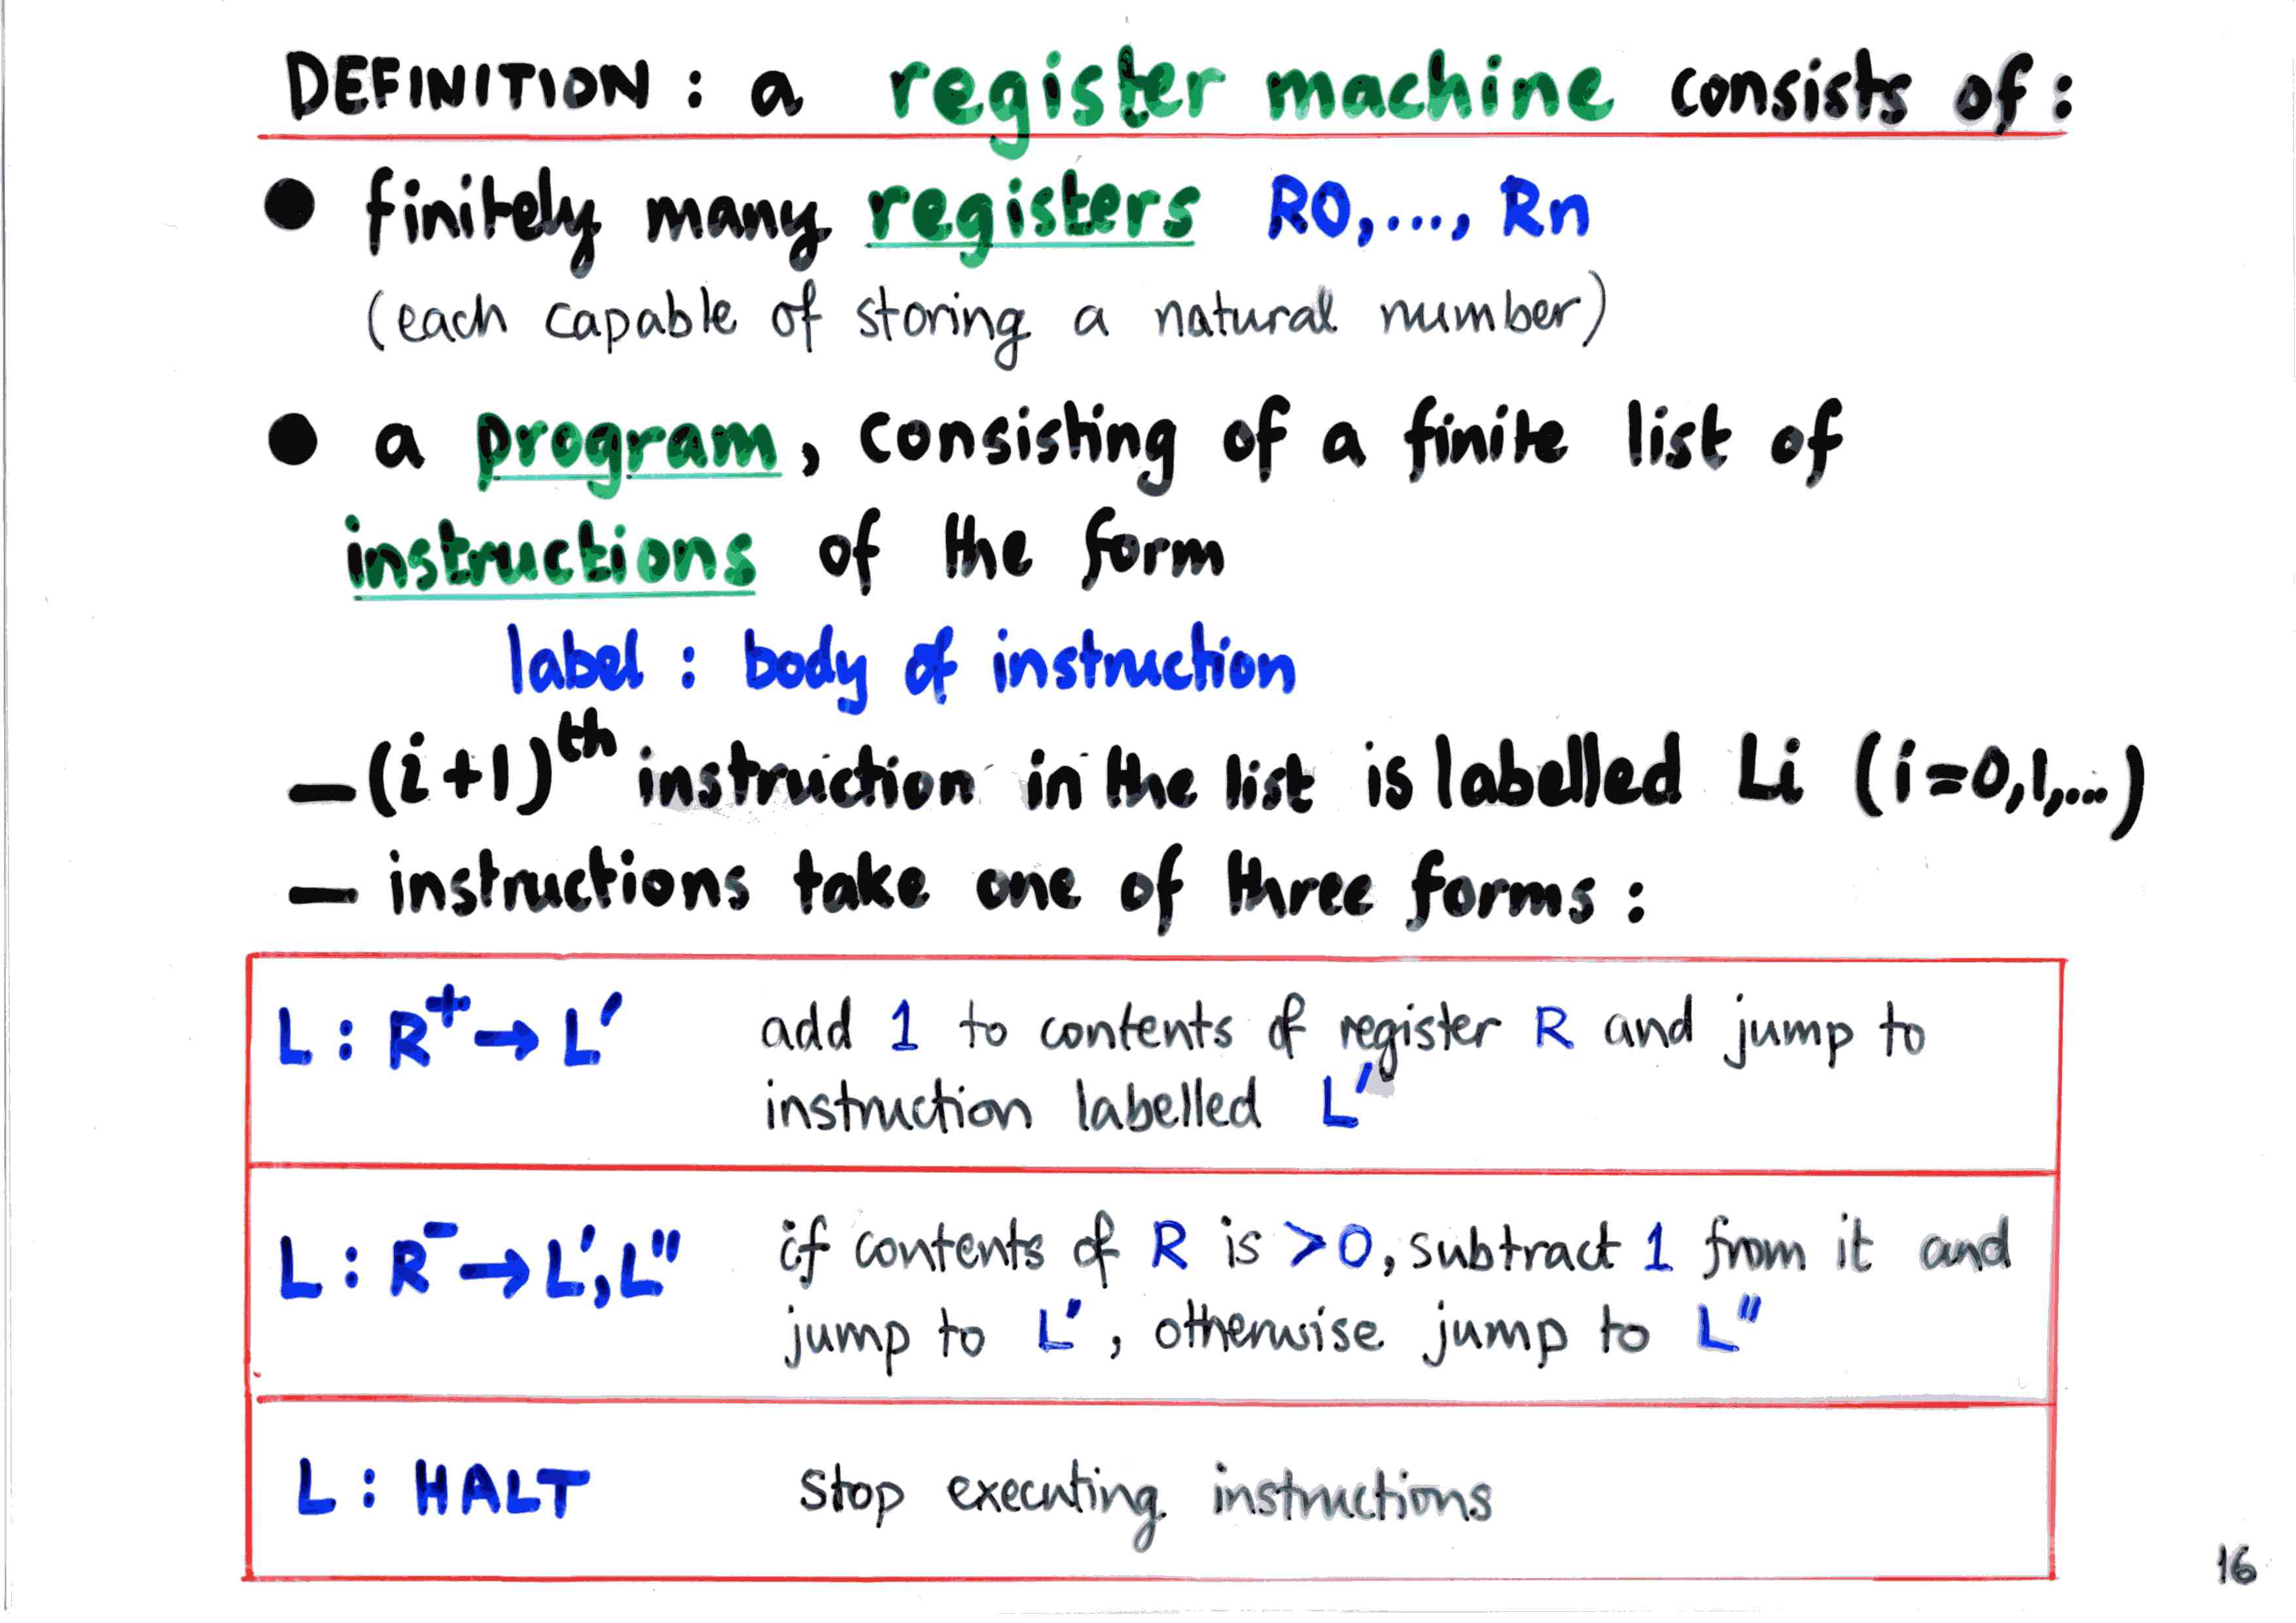 DEFINITION : a register machine consists of :
● finitely many registers R0,..., Rn
(each capable of storing a natural number)
● a program, consisting of a finite list of
instructions of the form
label : body of instruction
—(i+1)ᵗʰ instruction in the list is labelled Li (i=0,1,...)
— instructions take one of three forms :
L : R⁺→ L′ add 1 to contents of register R and jump to
instruction labelled L′
L : R⁻→L′,L″ if contents of R is >0, subtract 1 from it and
jump to L′, otherwise jump to L″
L : HALT stop executing instructions
16